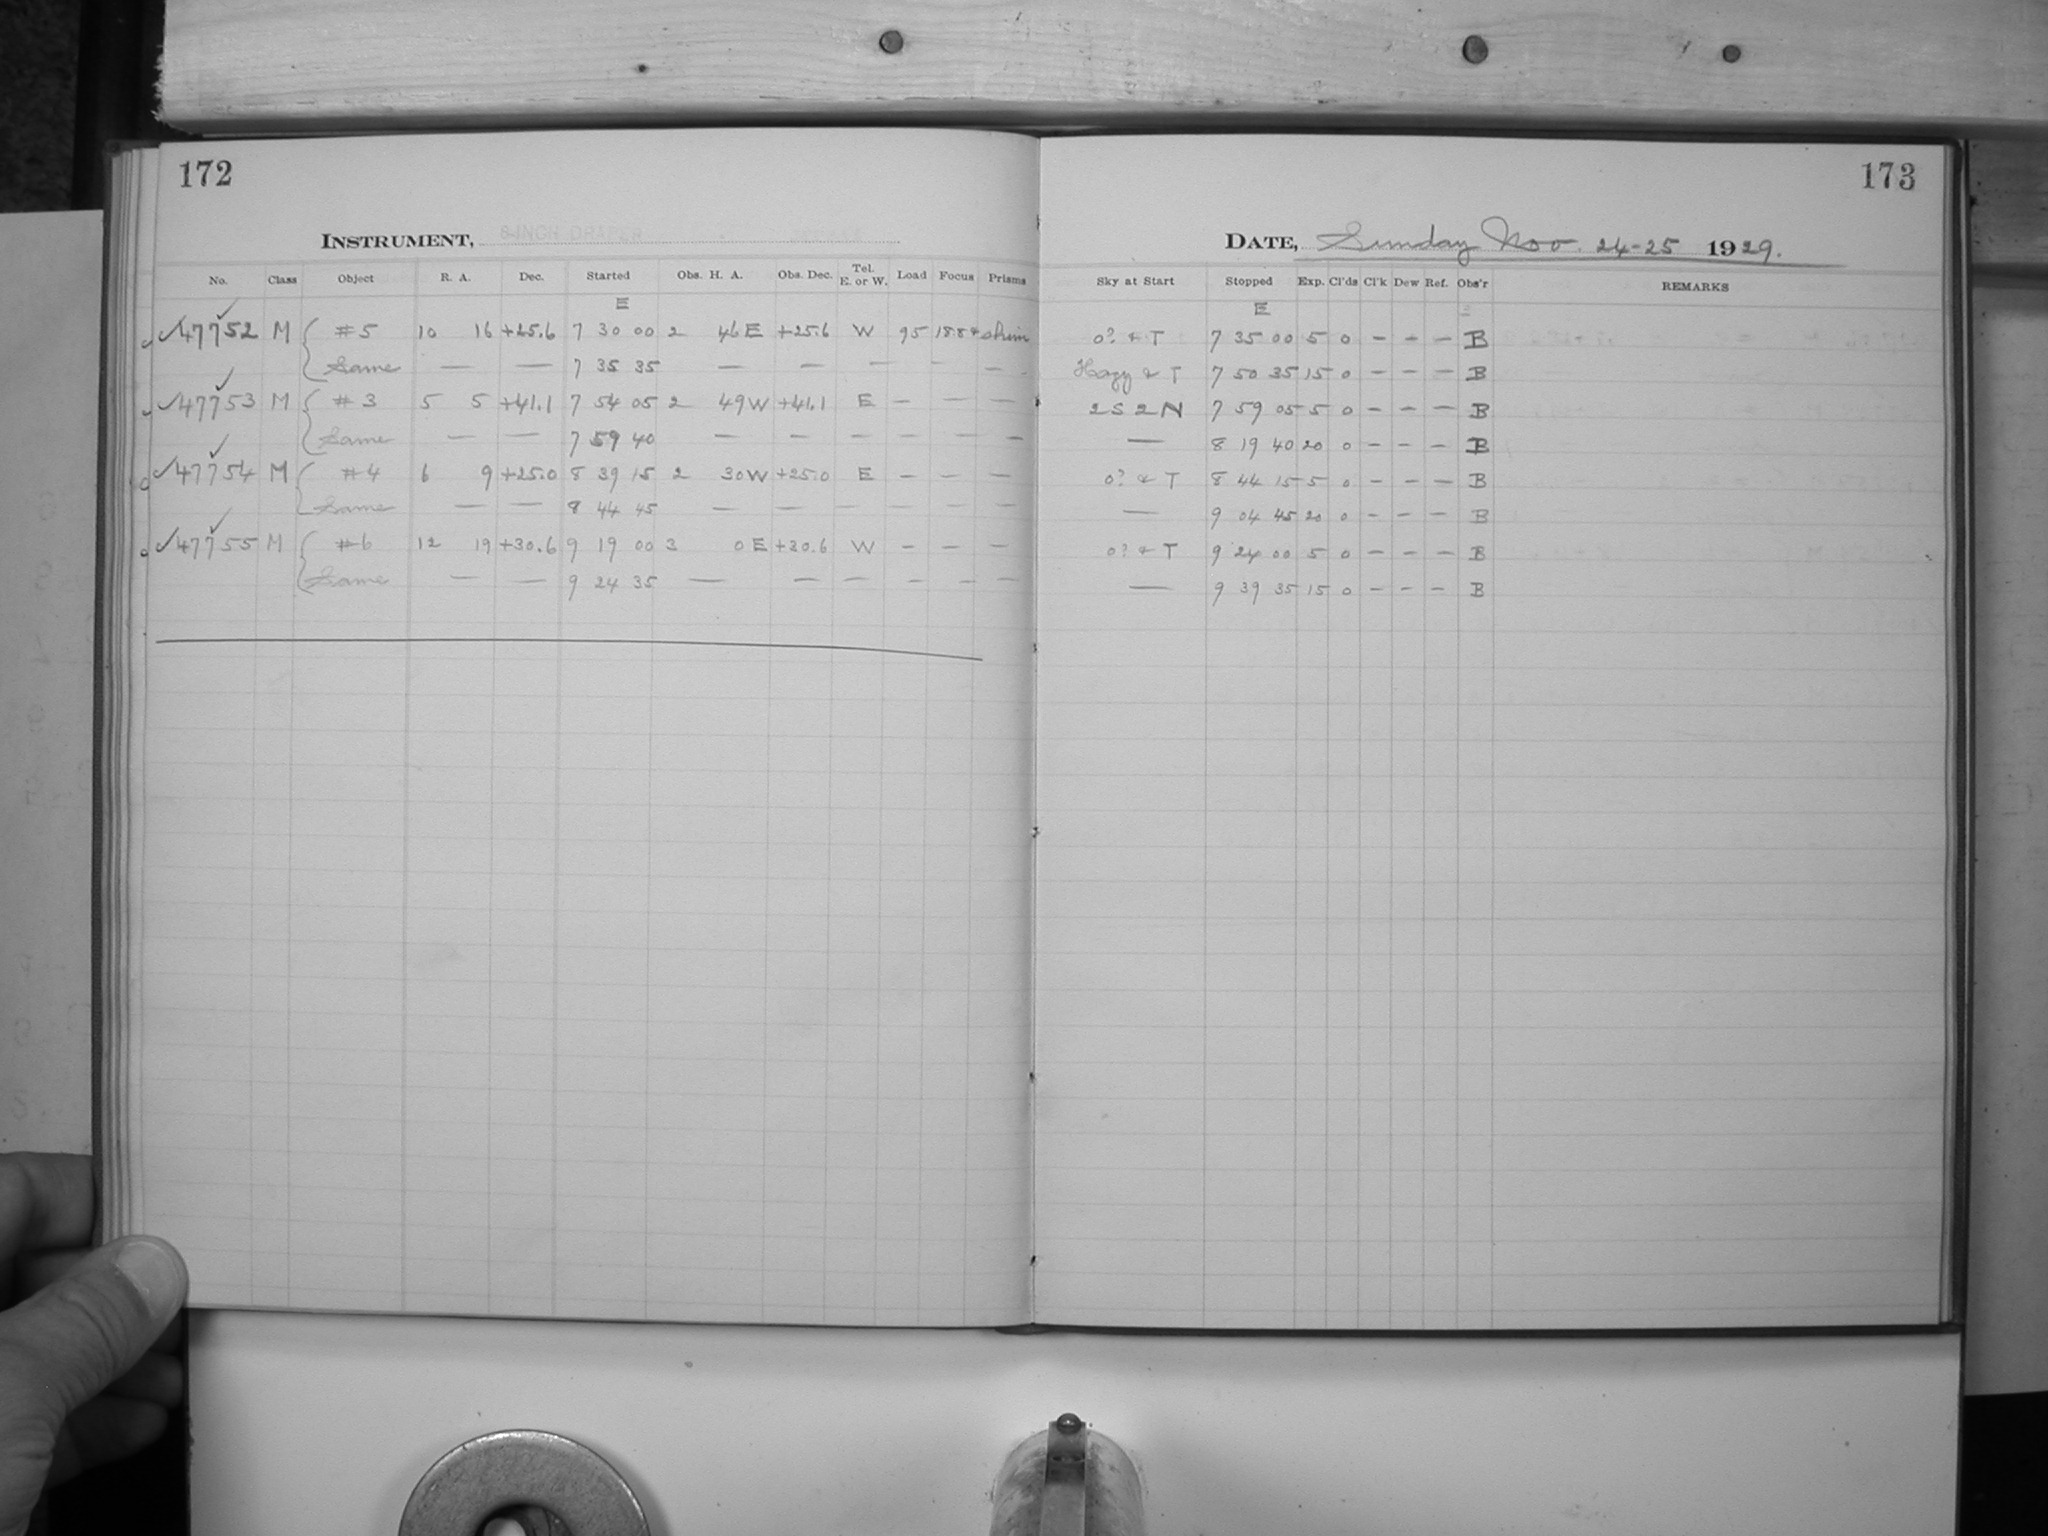 172
INSTRUMENT, 8-INCH DRAPER
No. Class Object R. A. Dec. Started Obs. H. A. Obs. Dec. Tel. E. or W. Load Focus Prisms
E
✓47752 M { #5 10 16 +25.6 7 30 00 2 46 E +25.6 W 95 18.8
Same — — 7 35 35 — — — — — —
✓47753 M { #3 5 5 +41.1 7 54 05 2 49 W +41.1 E — — —
Same — — 7 59 40 — — — — — —
✓47754 M { #4 6 9 +25.0 8 39 15 2 30 W +25.0 E — — —
Same — — 8 44 45 — — — — — —
✓47755 M { #6 12 19 +30.6 9 19 00 3 0 E +30.6 W — — —
Same — — 9 24 35 — — — — — —
173
DATE, Sunday Nov. 24-25 1929.
Sky at Start Stopped Exp. Cl'ds Cl'k Dew Ref. Obs'r REMARKS
E
0? & T 7 35 00 5 0 — — — B
Hazy & T 7 50 35 15 0 — — — B
2 S 2 N 7 59 05 5 0 — — — B
— 8 19 40 20 0 — — — B
0? & T 8 44 15 5 0 — — — B
— 9 04 45 20 0 — — — B
0? & T 9 24 00 5 0 — — — B
— 9 39 35 15 0 — — — B